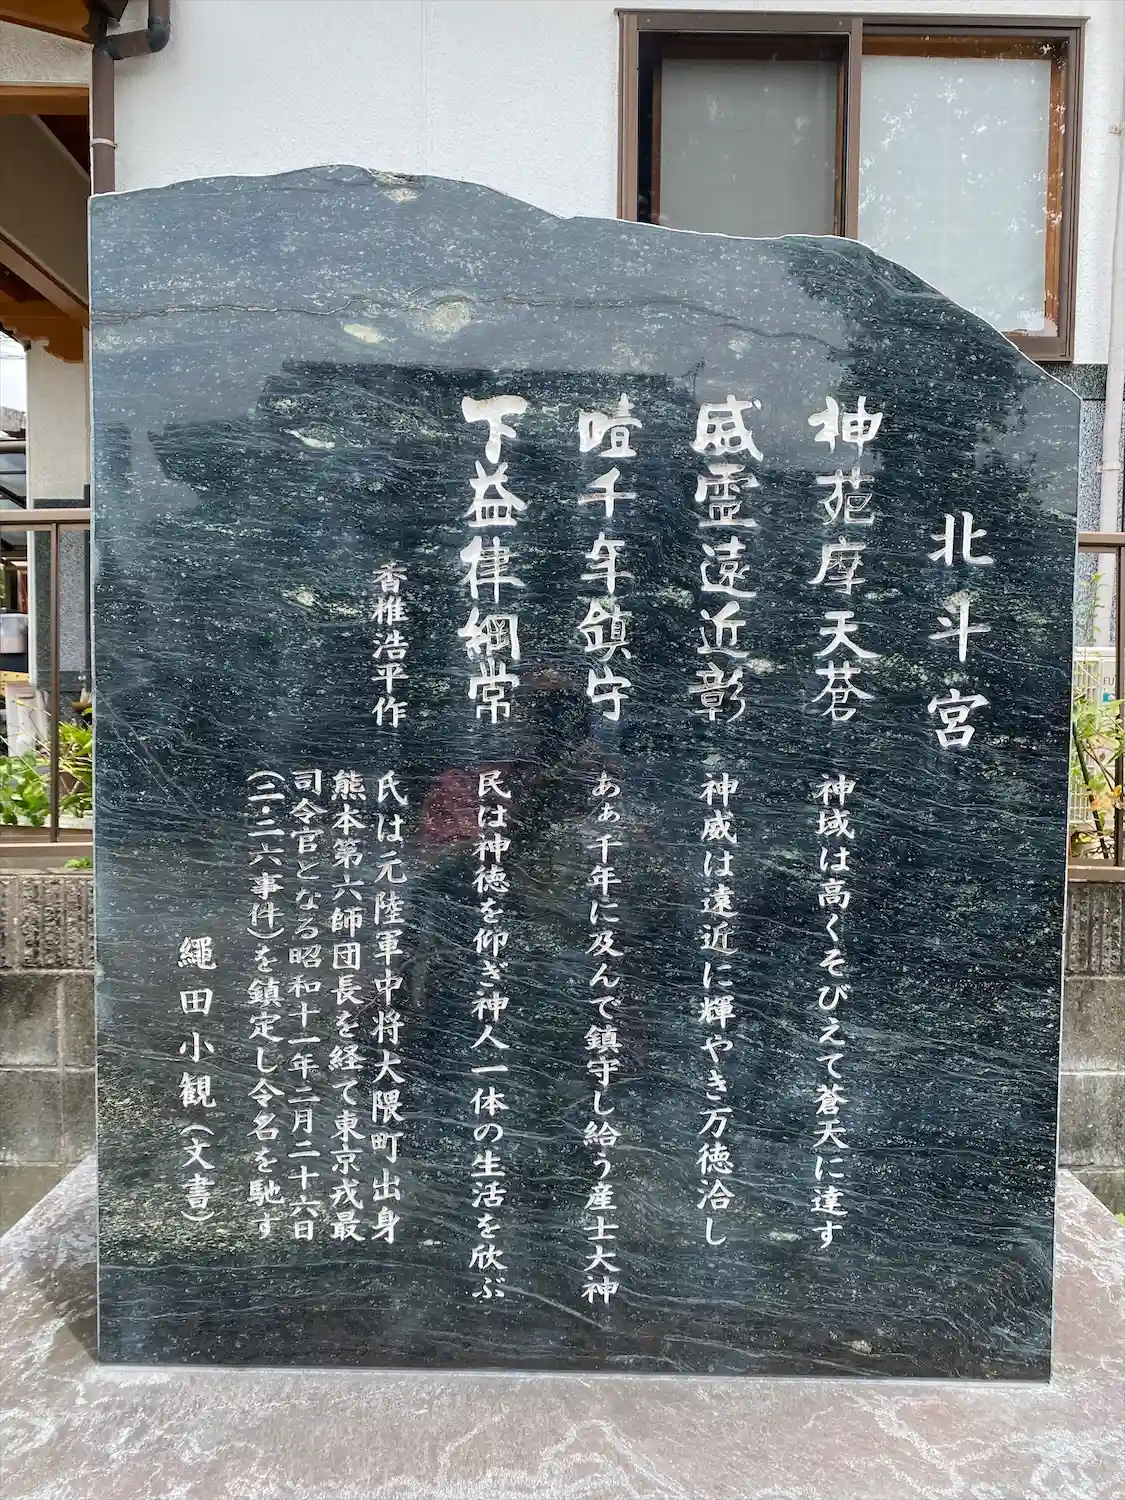 北斗宮
神苑摩天蒼 神域は高くそびえて蒼天に達す
威霊遠近彰 神威は遠近に輝やき万徳洽し
噎千年鎮守 あぁ千年に及んで鎮守し給う産土大神
下益律綱常 民は神徳を仰ぎ神人一体の生活を欣ぶ
香椎浩平作 氏は元陸軍中将大隈町出身
熊本第六師団長を経て東京戎最
司令官となる昭和十一年二月二十六日
(二・二六事件)を鎮定し令名を馳す
繩田小観(文書)